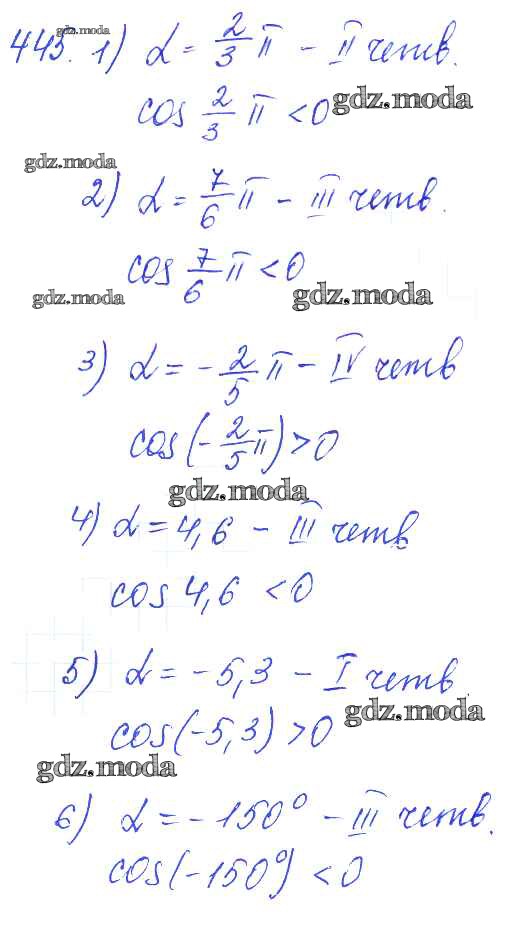 445. 1) α = 2/3 π – II четв.
gdz.moda
cos 2/3 π < 0
gdz.moda
gdz.moda
2) α = 7/6 π – III четв.
cos 7/6 π < 0
gdz.moda
gdz.moda
3) α = - 2/5 π – IV четв
cos(- 2/5 π) > 0
gdz.moda
4) α = 4,6 – III четв
cos 4,6 < 0
5) α = - 5,3 – I четв
gdz.moda
cos(-5,3) > 0
gdz.moda
6) α = - 150° – III четв.
cos(-150°) < 0